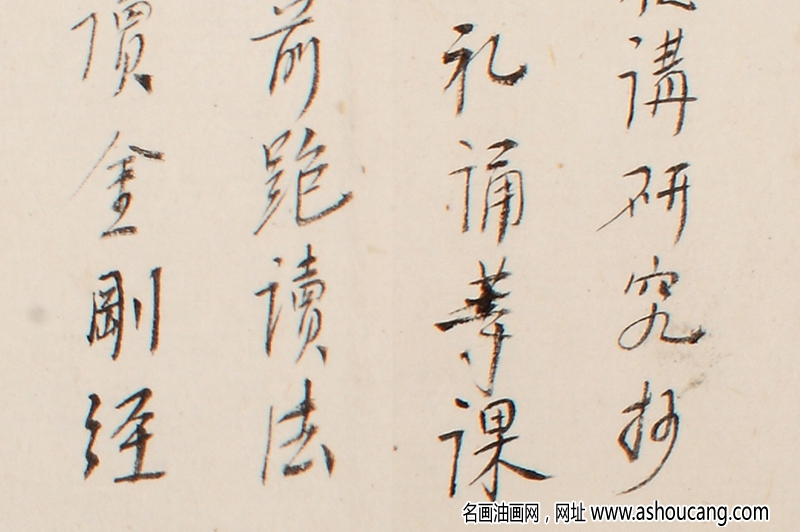 講研究抄
礼誦等課
前跪讀法
價金剛經
名画油画网，网址 www.ashoucang.com